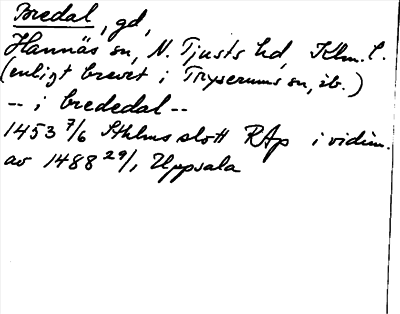 Bredal, gd,
Hannäs sn, N. Tjusts hd, Klm. l.
(enligt brevet i Tryserums sn, ib.)
-- i brededal --
1453 7/6 Sthlms slott RAp i vidim.
av 1488 29/1 Uppsala